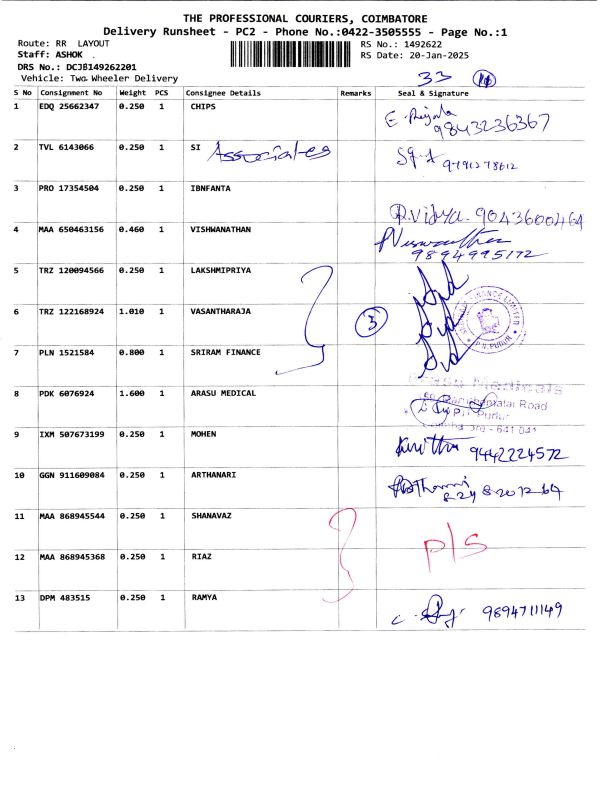 THE PROFESSIONAL COURIERS, COIMBATORE
Delivery Runsheet - PC2 - Phone No.:0422-3505555 - Page No.:1
Route: RR LAYOUT
RS No.: 1492622
Staff: ASHOK .
RS Date: 20-Jan-2025
DRS No.: DCJB149262201
Vehicle: Two Wheeler Delivery
33 10
S No Consignment No Weight PCS Consignee Details Remarks Seal & Signature
1 EDQ 25662347 0.250 1 CHIPS
9843236367
2 TVL 6143066 0.250 1 SI Associates
3 PRO 17354504 0.250 1 IBNFANTA R.Vidya. 9043600464
4 MAA 650463156 0.460 1 VISHWANATHAN
9894995172
5 TRZ 120094566 0.250 1 LAKSHMIPRIYA
6 TRZ 122168924 1.010 1 VASANTHARAJA 3
FINANCE LIMITED
7 PLN 1521584 0.800 1 SRIRAM FINANCE
8 PDK 6076924 1.600 1 ARASU MEDICAL
Road
Pudur
9 IXM 507673199 0.250 1 MOHEN 9442224572
10 GGN 911609084 0.250 1 ARTHANARI
11 MAA 868945544 0.250 1 SHANAVAZ P/S
12 MAA 868945368 0.250 1 RIAZ
13 DPM 483515 0.250 1 RAMYA 9894711149